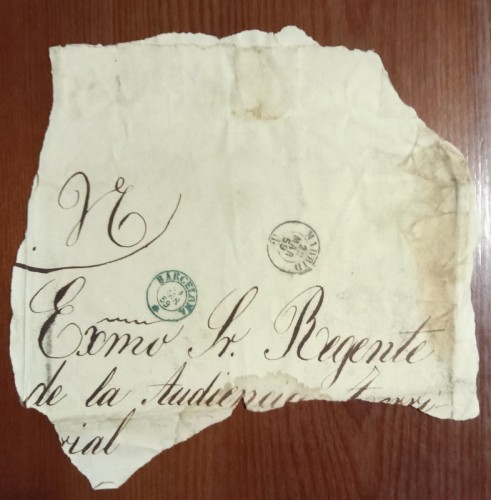 MADRID
59
BARCELONA
59
Exmo Sr. Regente
de la Audiencia Terri
rial